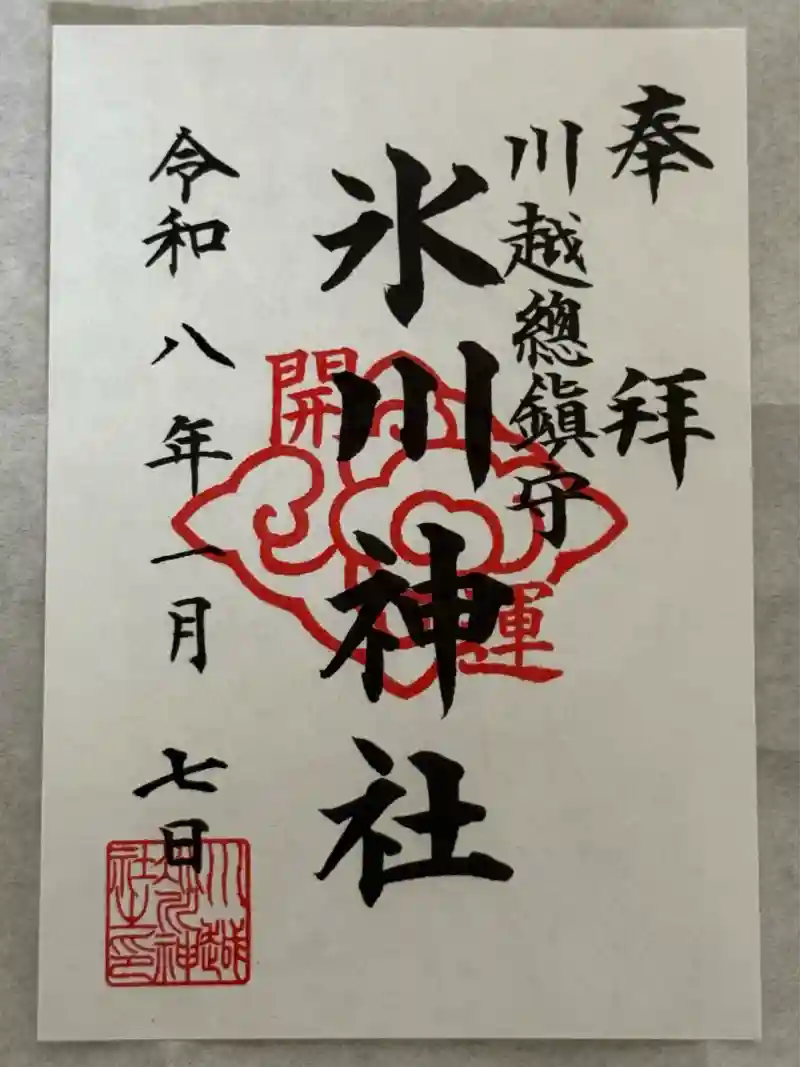 奉拝
川越總鎮守
氷川神社
令和八年一月七日
開運
川越氷川神社之印